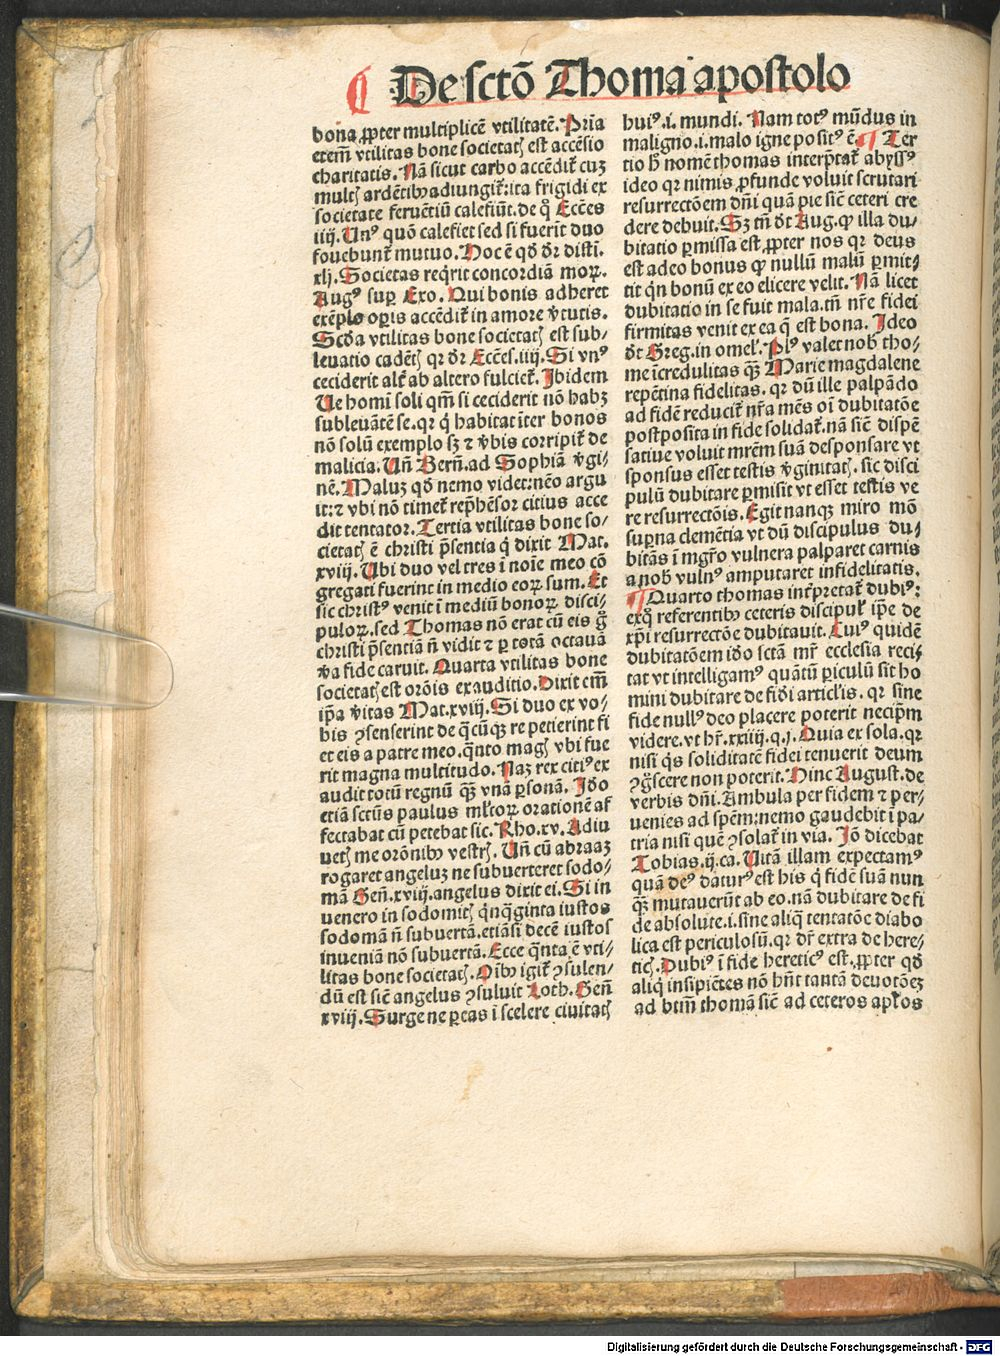 ¶ De sctō Thoma apostolo
bona ꝓpter multiplicē vtilitatē. Prīa
etem̄ vtilitas bone societatꝭ est accēsio
charitatis. Nā sicut carbo accēdit᷑ cuꝫ
multꝭ ardētibꝰ adiungit᷑: ita frigidi ex
societate feruētiū calefiūt. de q̊ Eccēs
iiij. Unꝰ quō calefiet sed si fuerit duo
fouebunt᷑ mutuo. Hoc ē qd̄ dr̄ disti.
xlj. Societas reqͥrit concordiā moꝝ.
Augꝰ suꝑ Exo. Qui bonis adheret
exēplo oꝑis accēdit᷑ in amore v̾tutis.
Scd̄a vtilitas bone societatꝭ est sub-
leuatio cadētꝭ qꝛ dr̄ Eccēs. iiij. Si vnꝰ
ceciderit alt᷑ ab altero fulciet᷑. Ibidem
Ue homī soli qm̄ si ceciderit nō habꝫ
subleuātē se. qꝛ qͥ habitat īter bonos
nō solū exemplo sꝫ ⁊ v̾bis corripit᷑ de
malicia. Un̄ Bern̄. ad Sophiā v̾gi-
nē. Maluꝫ qd̄ nemo videt: nēo argu
it: ⁊ vbi nō timet᷑ rep̄hēsor citius acce
dit tentator. Tertia vtilitas bone so-
cietatꝭ ē christi p̄sentia qͥ dixit Mat.
xviij. Ubi duo vel tres ī noīe meo cō
gregati fuerint in medio eoꝝ sum. Et
sic christꝰ venit ī mediū bonoꝝ disci-
puloꝝ. sed Thomas nō erat cū eis g̊
christi p̄sentiā n̄ vidit ⁊ ꝑ totā octauā
v̾a fide caruit. Quarta vtilitas bone
societatꝭ est orōis exauditio. Dixit em̄
ip̄a v̾itas Mat. xviij. Si duo ex vo-
bis ꝯsenserint de q̄cūqꝫ re petierint fi
et eis a patre meo. qͣnto magꝭ vbi fue
rit magna multitudo. Naꝫ rex citiꝰ ex
audit totū regnū qꝫ vnā ꝑsonā. Iđo
etiā sctūs paulus ml̓toꝝ orationē af
fectabat cū petebat sic. Rho. xv. Adiu
uetꝭ me orōnibꝰ vestrꝭ. Un̄ cū abraaꝫ
rogaret angeluꝫ ne subuerteret sodo-
mā Gen̄. xviij. angelus dixit ei. Si in
uenero in sodomitꝭ qͥnqͣginta iustos
sodomā n̄ subuertā. etiāsi decē iustos
inueniā nō subuertā. Ecce qͥnta ē vti-
litas bone societatꝭ. Oībꝰ igit᷑ ꝯsulen-
dū est sic̄ angelus ꝯsuluit Loth. Gen̄
xviij. Surge ne ꝑeas ī scelere ciuitatꝭ
huiꝰ. i. mundi. Nam totꝰ mūdus in
maligno. i. malo igne positꝰ ē. ¶ Ter
tio h̄ nomē thomas interp̄tat᷑ abyssꝰ
ideo qꝛ nimis ꝓfunde voluit scrutari
resurrectōem dn̄i quā pie sic̄ ceteri cre
dere debuit. Sꝫ tn̄ dt̄ Aug. ꝙ illa du-
bitatio ꝑmissa est ꝓpter nos qꝛ deus
est adeo bonus ꝙ nullū malū ꝑmit-
tit qͥn bonū ex eo elicere velit. Nā licet
dubitatio in se fuit mala. tn̄ nr̄e fidei
firmitas venit ex ea q̄ est bona. Ideo
dt̄ Greg. in omel̓. Plꝰ valet nob̄ tho-
me īcredulitas qꝫ Marie magdalene
repētina fidelitas. qꝛ dū ille palpādo
ad fidē reducit᷑ nr̄a mēs oī dubitatōe
postposita in fide solidat᷑. nā sic̄ dispē
satiue voluit mr̄em suā desponsare vt
sponsus esset testis v̾ginitatꝭ. sic disci
pulū dubitare ꝑmisit vt esset testis ve
re resurrectōis. Egit nanqꝫ miro mō
suꝑna clemētia vt dū discipulus du-
bitās ī mgr̄o vulnera palparet carnis
a nob̄ vulnꝰ amputaret infidelitatis.
¶ Quarto thomas int̓p̄tat᷑ dubiꝰ:
exq̊ referentibꝰ ceteris discipul̓ ip̄e de
xp̄i resurrectōe dubitauit. Cuiꝰ quidē
dubitatōem iđo sctā mr̄ ecclesia reci
tat vt intelligamꝰ quātū ꝑiculū sit ho
mini dubitare de fidi articl̓is. qꝛ sine
fide nullꝰ deo placere poterit nec ip̄m
videre. vt hr̄. xxiiij. q. j. Quia ex sola. qꝛ
nisi qͥs soliditatē fidei tenuerit deum
ꝯgͦscere non poterit. Hinc August. de
verbis dn̄i. Ambula per fidem ⁊ per-
uenies ad spēm: nemo gaudebit ī pa-
tria nisi quē ꝯsolat᷑ in via. Iō dicebat
Tobias. ij. ca. Uitā illam expectamꝰ
quā deꝰ daturꝰ est his qͥ fidē suā nun
qꝫ mutauerūt ab eo. nā dubitare de fi
de absolute. i. sine aliqͣ tentatōe diabo
lica est periculosū. qꝛ dr̄ extra de here-
ticꝭ. Dubiꝰ ī fide hereticꝰ est. ꝓpter qd̄
aliqͥ insipiētes nō hn̄t tantā deuotōeꝫ
ad btm̄ thomā sic̄ ad ceteros apl̓os
Digitalisierung gefördert durch die Deutsche Forschungsgemeinschaft - DFG